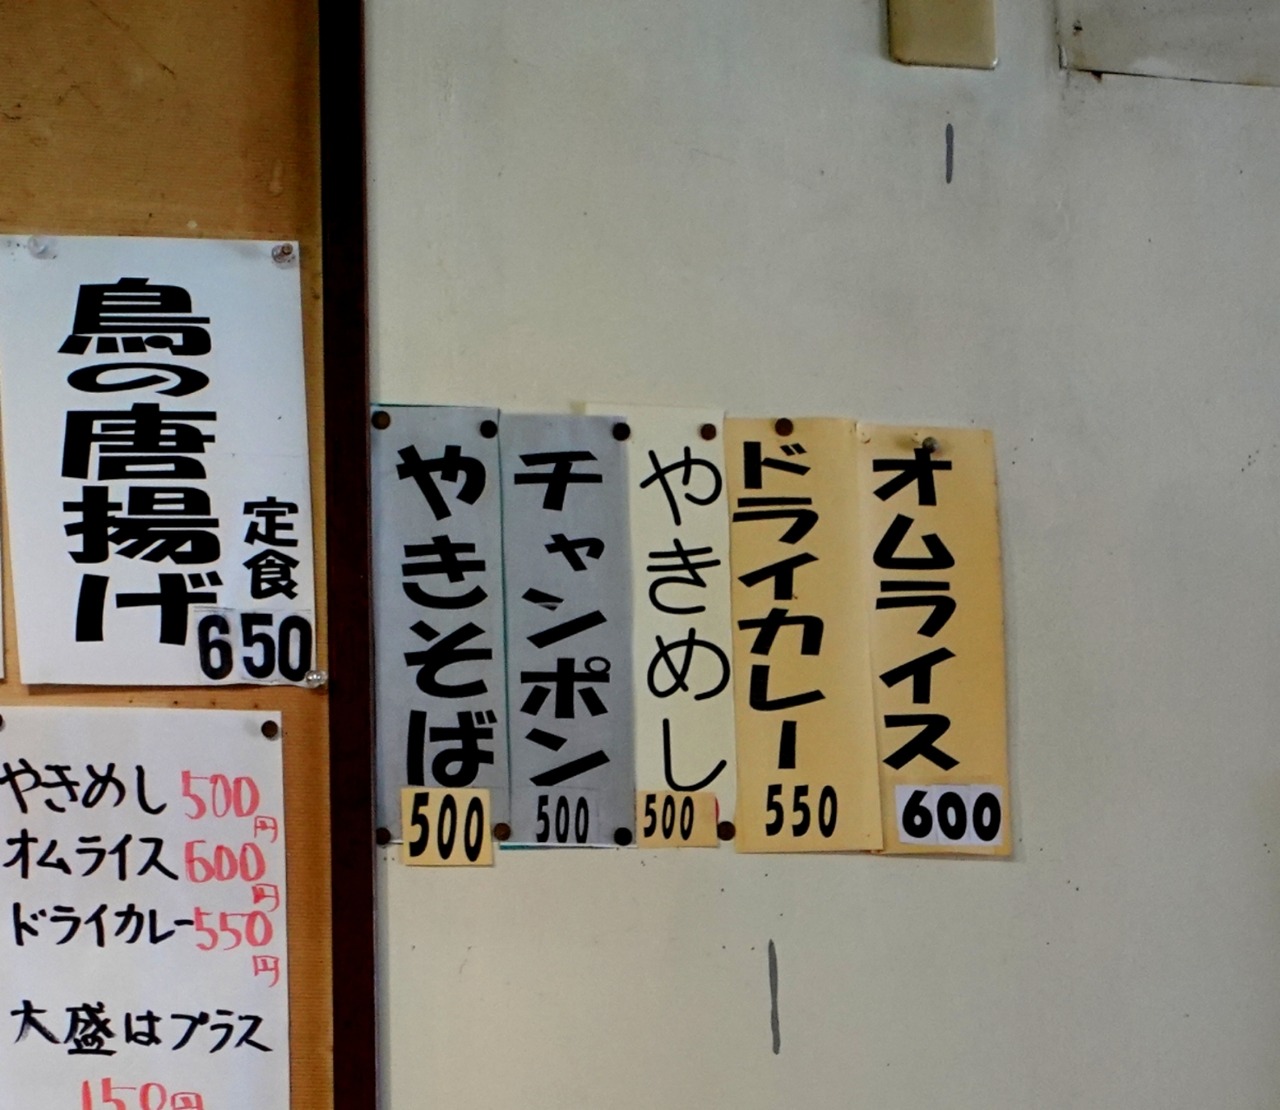 鳥の唐揚げ
定食
650
やきめし 500円
オムライス 600円
ドライカレー 550円
大盛はプラス
150円
やきそば
500
チャンポン
500
やきめし
500
ドライカレー
550
オムライス
600